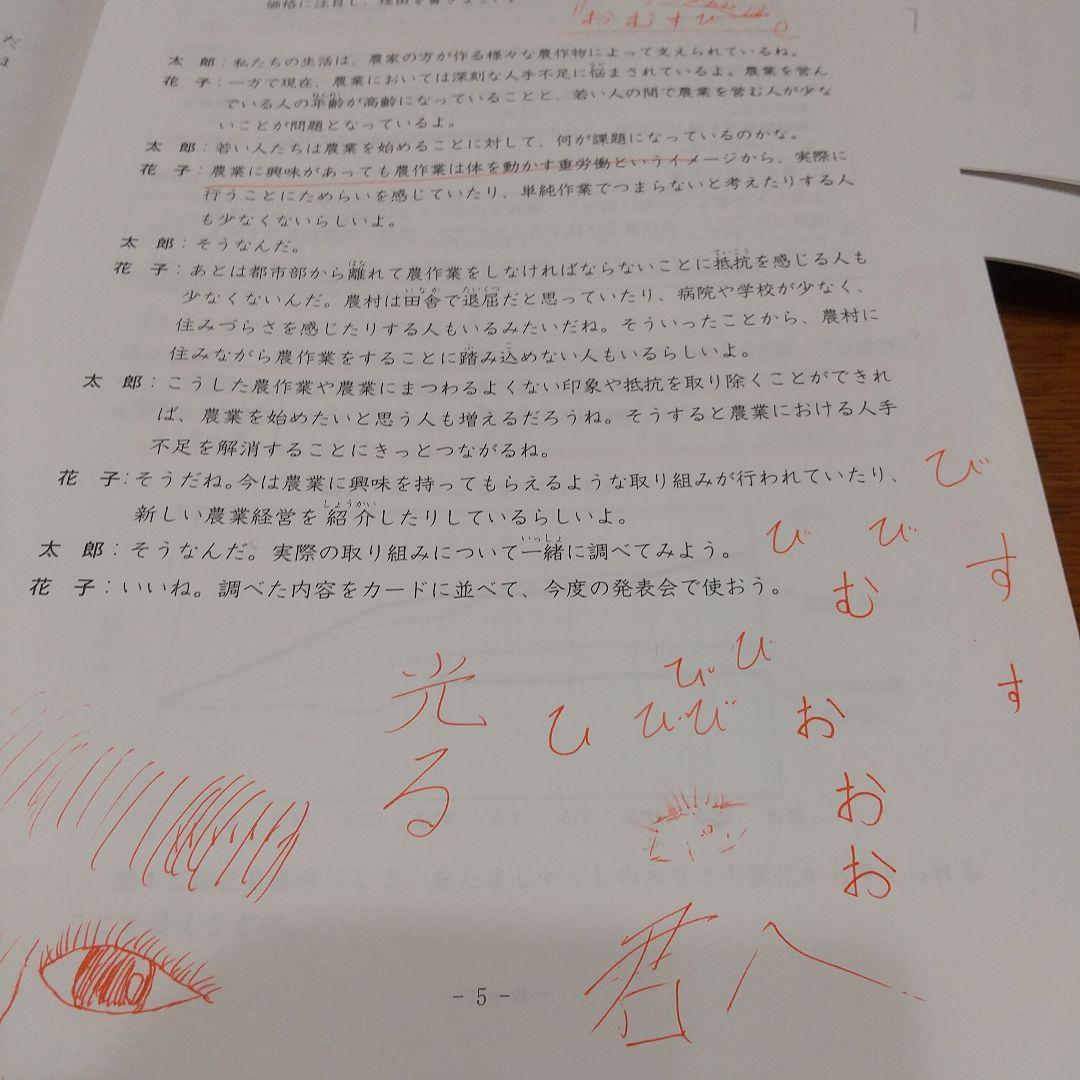 価格に注目し、理由を書きなさい。
おむすび
太　郎：私たちの生活は、農家の方が作る様々な農作物によって支えられているね。
花　子：一方で現在、農業においては深刻な人手不足に悩まされているよ。農業を営ん
でいる人の年齢が高齢になっていることと、若い人の間で農業を営む人が少な
いことが問題となっているよ。
太　郎：若い人たちは農業を始めることに対して、何が課題になっているのかな。
花　子：農業に興味があっても農作業は体を動かす重労働というイメージから、実際に
行うことにためらいを感じていたり、単純作業でつまらないと考えたりする人
も少なくないらしいよ。
太　郎：そうなんだ。
花　子：あとは都市部から離れて農作業をしなければならないことに抵抗を感じる人も
少なくないんだ。農村は田舎で退屈だと思っていたり、病院や学校が少なく、
住みづらさを感じたりする人もいるみたいだね。そういったことから、農村に
住みながら農作業をすることに踏み込めない人もいるらしいよ。
太　郎：こうした農作業や農業にまつわるよくない印象や抵抗を取り除くことができれ
ば、農業を始めたいと思う人も増えるだろうね。そうすると農業における人手
不足を解消することにきっとつながるね。
花　子：そうだね。今は農業に興味を持ってもらえるような取り組みが行われていたり、
新しい農業経営を紹介したりしているらしいよ。
太　郎：そうなんだ。実際の取り組みについて一緒に調べてみよう。
花　子：いいね。調べた内容をカードに並べて、今度の発表会で使おう。
び
び び
す
む
び
び
す
ひ びび
お
お
お
光る
君へ
- 5 -